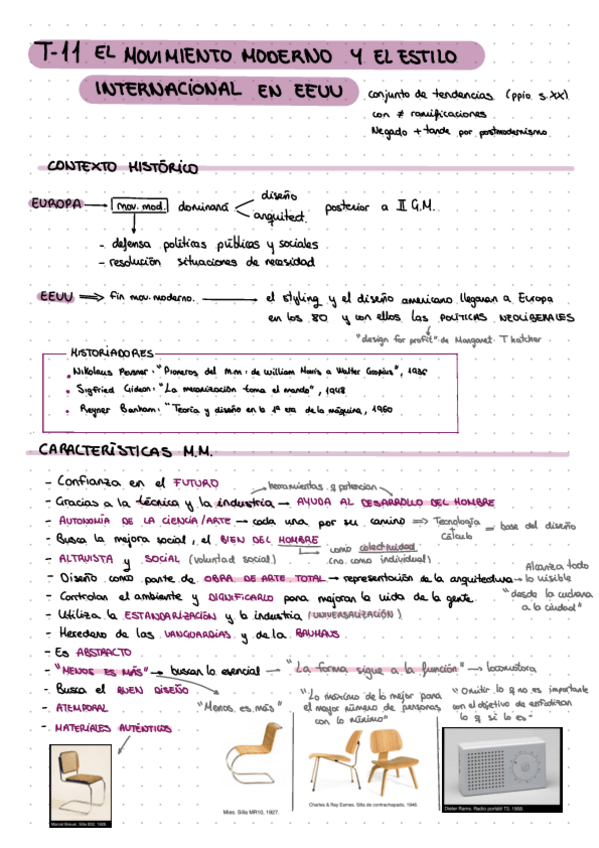 T-11 EL MOVIMIENTO MODERNO Y EL ESTILO
INTERNACIONAL EN EEUU
conjunto de tendencias (ppio s.XX)
con ≠ ramificaciones
Negado + tarde por postmodernismo
CONTEXTO HISTÓRICO
EUROPA → mov. mod. dominará < diseño arquitect. posterior a II G.M.
- defensa políticas públicas y sociales
- resolución situaciones de necesidad
EEUU ⇒ fin mov. moderno. → el styling y el diseño americano llegaran a Europa
en los 80 y con ellos las POLÍTICAS NEOLIBERALES
"design for profit" de Margaret Thatcher
HISTORIADORES
• Nikolaus Pevsner: "Pioneros del m.m: de William Morris a Walter Gropius", 1936
• Sigfried Gideon: "La mecanización toma el mando", 1948
• Reyner Banham: "Teoría y diseño en la 1ª era de la máquina, 1960
CARACTERÍSTICAS M.M.
- Confianza en el FUTURO
herramientas q potencian
- Gracias a la técnica y la industria → AYUDA AL DESARROLLO DEL HOMBRE
- AUTONOMÍA DE LA CIENCIA/ARTE → cada una por su camino ⇒ Tecnología + Cálculo = base del diseño
- Busca la mejora social, el BIEN DEL HOMBRE
como colectividad
(no como individual)
- ALTRUISTA y SOCIAL (voluntad social)
- Diseño como parte de OBRA DE ARTE TOTAL → representación de la arquitectura →
Alcanza todo
lo visible
"desde la cuchara
a la ciudad"
- Controlan el ambiente y DIGNIFICARLO para mejoran la vida de la gente
- Utiliza la ESTANDARIZACIÓN y la industria (UNIVERSALIZACIÓN)
- Heredero de las VANGUARDIAS y de la BAUHAUS
- Es ABSTRACTO
- "MENOS ES MÁS" → buscar lo esencial → "La forma sigue a la función" → locomotora
- Busca el BUEN DISEÑO
- ATEMPORAL
- MATERIALES AUTÉNTICOS
"Menos es más"
"Lo máximo de lo mejor para
el mayor número de personas
con lo mínimo"
"Omitir lo q no es importante
con el objetivo de enfatizar
lo q si lo es"
Marcel Breuer. Silla B32, 1928.
Mies. Silla MR10, 1927.
Charles & Ray Eames. Silla de contrachapado, 1946.
Dieter Rams. Radio portátil T3. 1958.